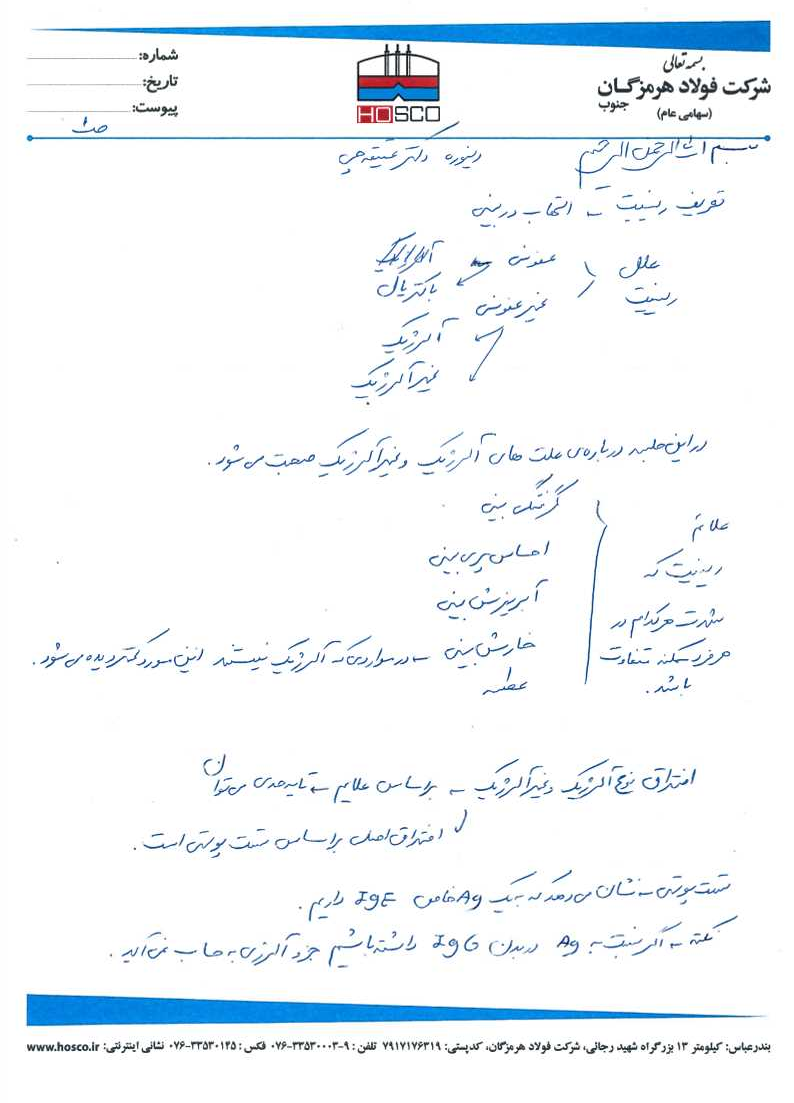 بسمه تعالی
شرکت فولاد هرمزگان جنوب
(سهامی عام)
HOSCO
شماره:
تاریخ:
پیوست:
ص۱
بسم الله الرحمن الرحیم
دکتر عتیقه چی
تعریف رینیت ← التهاب در بینی
علل رینیت
عفونی
باکتریال
غیرعفونی
آلرژیک
غیرآلرژیک
در این جلسه درباره‌ی علت های آلرژیک و غیرآلرژیک صحبت می شود.
علائم رینیت که شدت هرکدام در هر فرد ممکنه متفاوت باشد.
گرفتگی بینی
احساس پری بینی
آبریزش بینی
خارش بینی ← در مواردی که آلرژیک نیستند این مورد کمتر دیده می شود.
عطسه
افتراق نوع آلرژیک و غیرآلرژیک ← براساس علایم ← تا یه حدی می توان
افتراق اصلی براساس تست پوستی است.
تست پوستی ← نشان می دهد که به یک Ag خاص IgE داریم.
نکته ← اگر نسبت به Ag در بدن IgG داشته باشیم جزء آلرژی به حساب نمی آید.
بندرعباس: کیلومتر ۱۳ بزرگراه شهید رجائی، شرکت فولاد هرمزگان، کدپستی: ۷۹۱۷۱۷۶۳۱۹ تلفن: ۹-۰۷۶-۳۳۵۳۰۰۰۳ فکس: ۰۷۶-۳۳۵۳۰۱۴۵ نشانی اینترنتی: www.hosco.ir